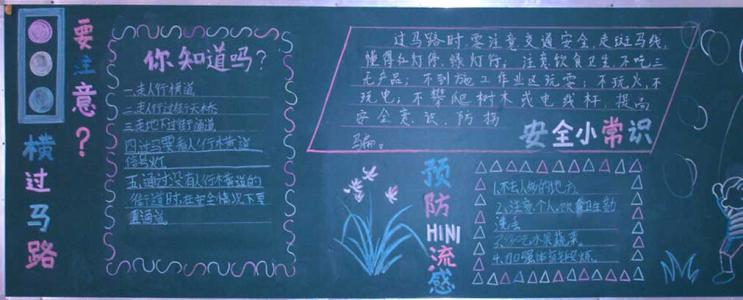 要注意？
横过马路
你知道吗？
一.走人行横道
二.走人行过街天桥
三.走地下过街通道
四.过马路要看人行横道
信号灯
五.通过没有人行横道的
街道时,在安全情况下要
直通过
过马路时,要注意交通安全,走斑马线,
懂得红灯停、绿灯行；注意饮食卫生,不吃三
无产品；不到施工作业区玩耍；不玩火,不
玩电；不攀爬树木或电线杆,提高
安全意识,防拐
安全小常识
预防H1N1流感
1.不去人多的地方
2.注意个人,饮食卫生勤
洗手
水果蔬菜
4.加强体育锻炼